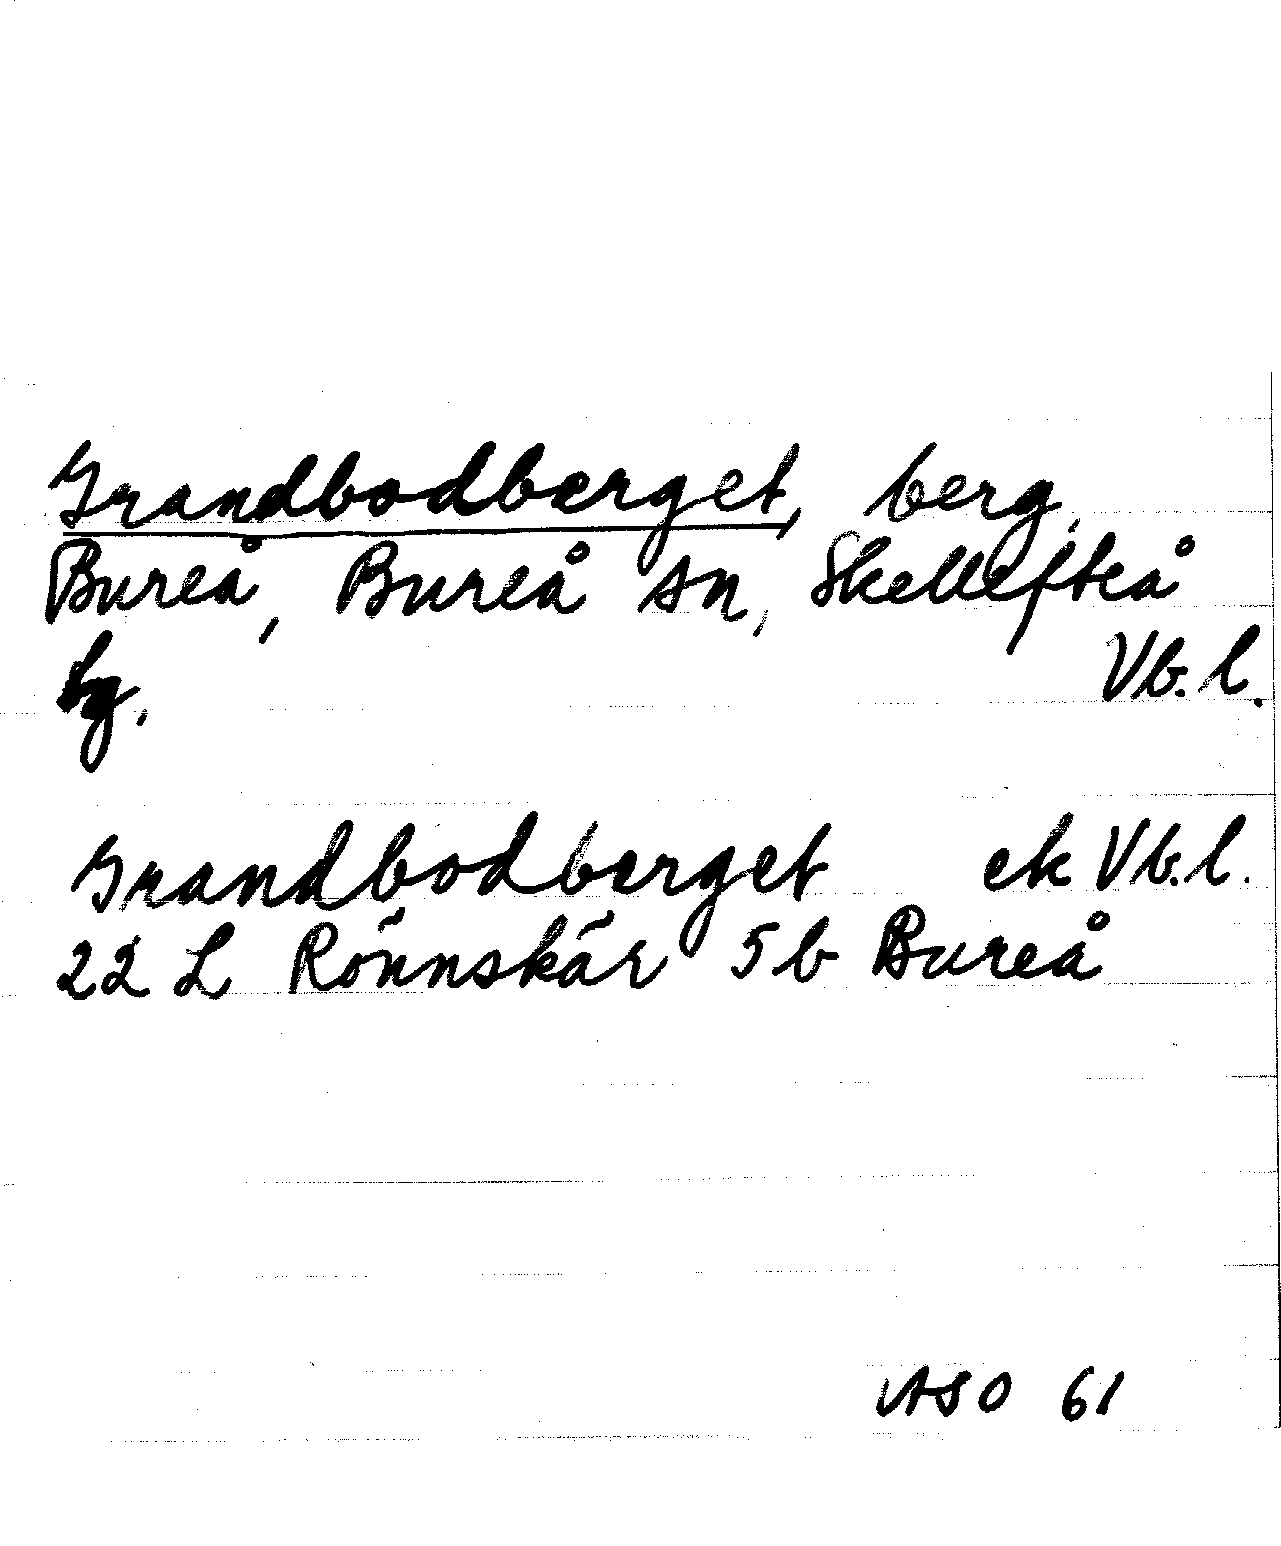 Grandbodberget, berg,
Bureå, Bureå sn, Skellefteå
tg. Vb. l.
Grandbodberget ek Vb. l.
22 L Rönnskär 5 b Bureå
ASO 61